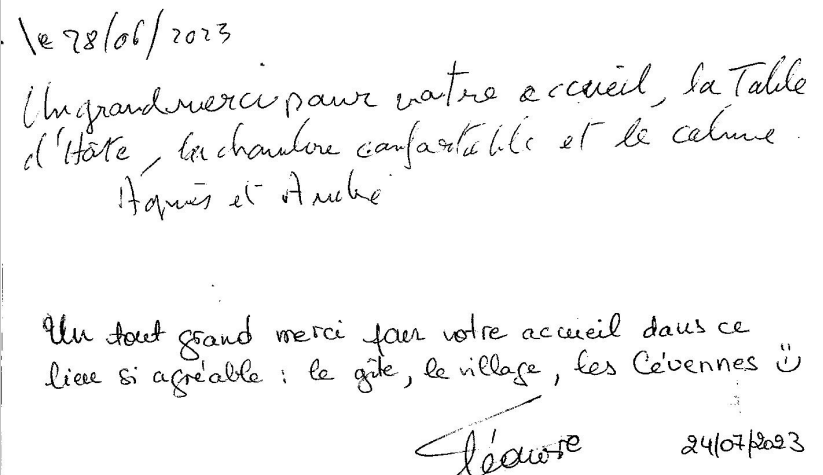 le 28/06/2023
Un grand merci pour votre accueil, la Table
d'Hôte, la chambre confortable et le calme.
Agnès et André
Un tout grand merci pour votre accueil dans ce
lieu si agréable : le gîte, le village, les Cévennes ☺
24/07/2023